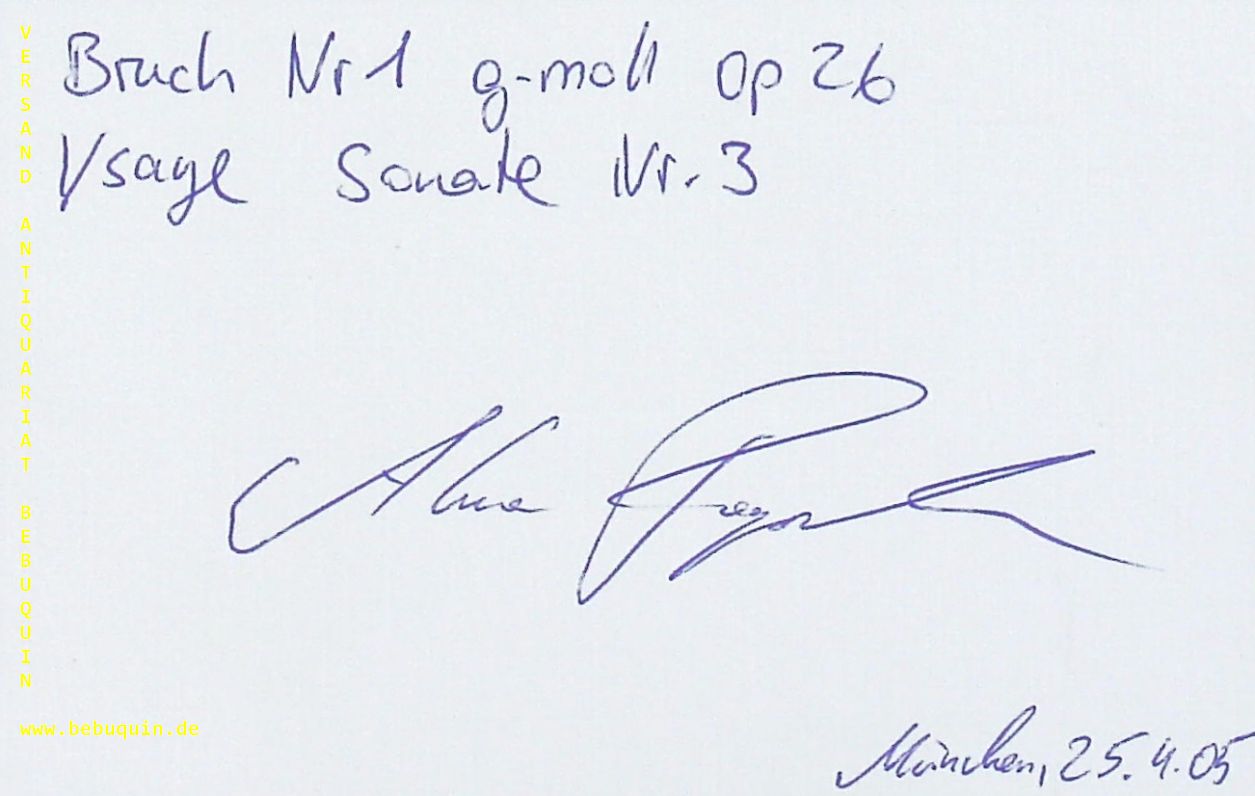 Bruch Nr 1 g-moll op 26
Ysaye Sonate Nr. 3
Alma
München, 25.4.05
VERSAND ANTIQUARIAT BEBUQUIN
www.bebuquin.de